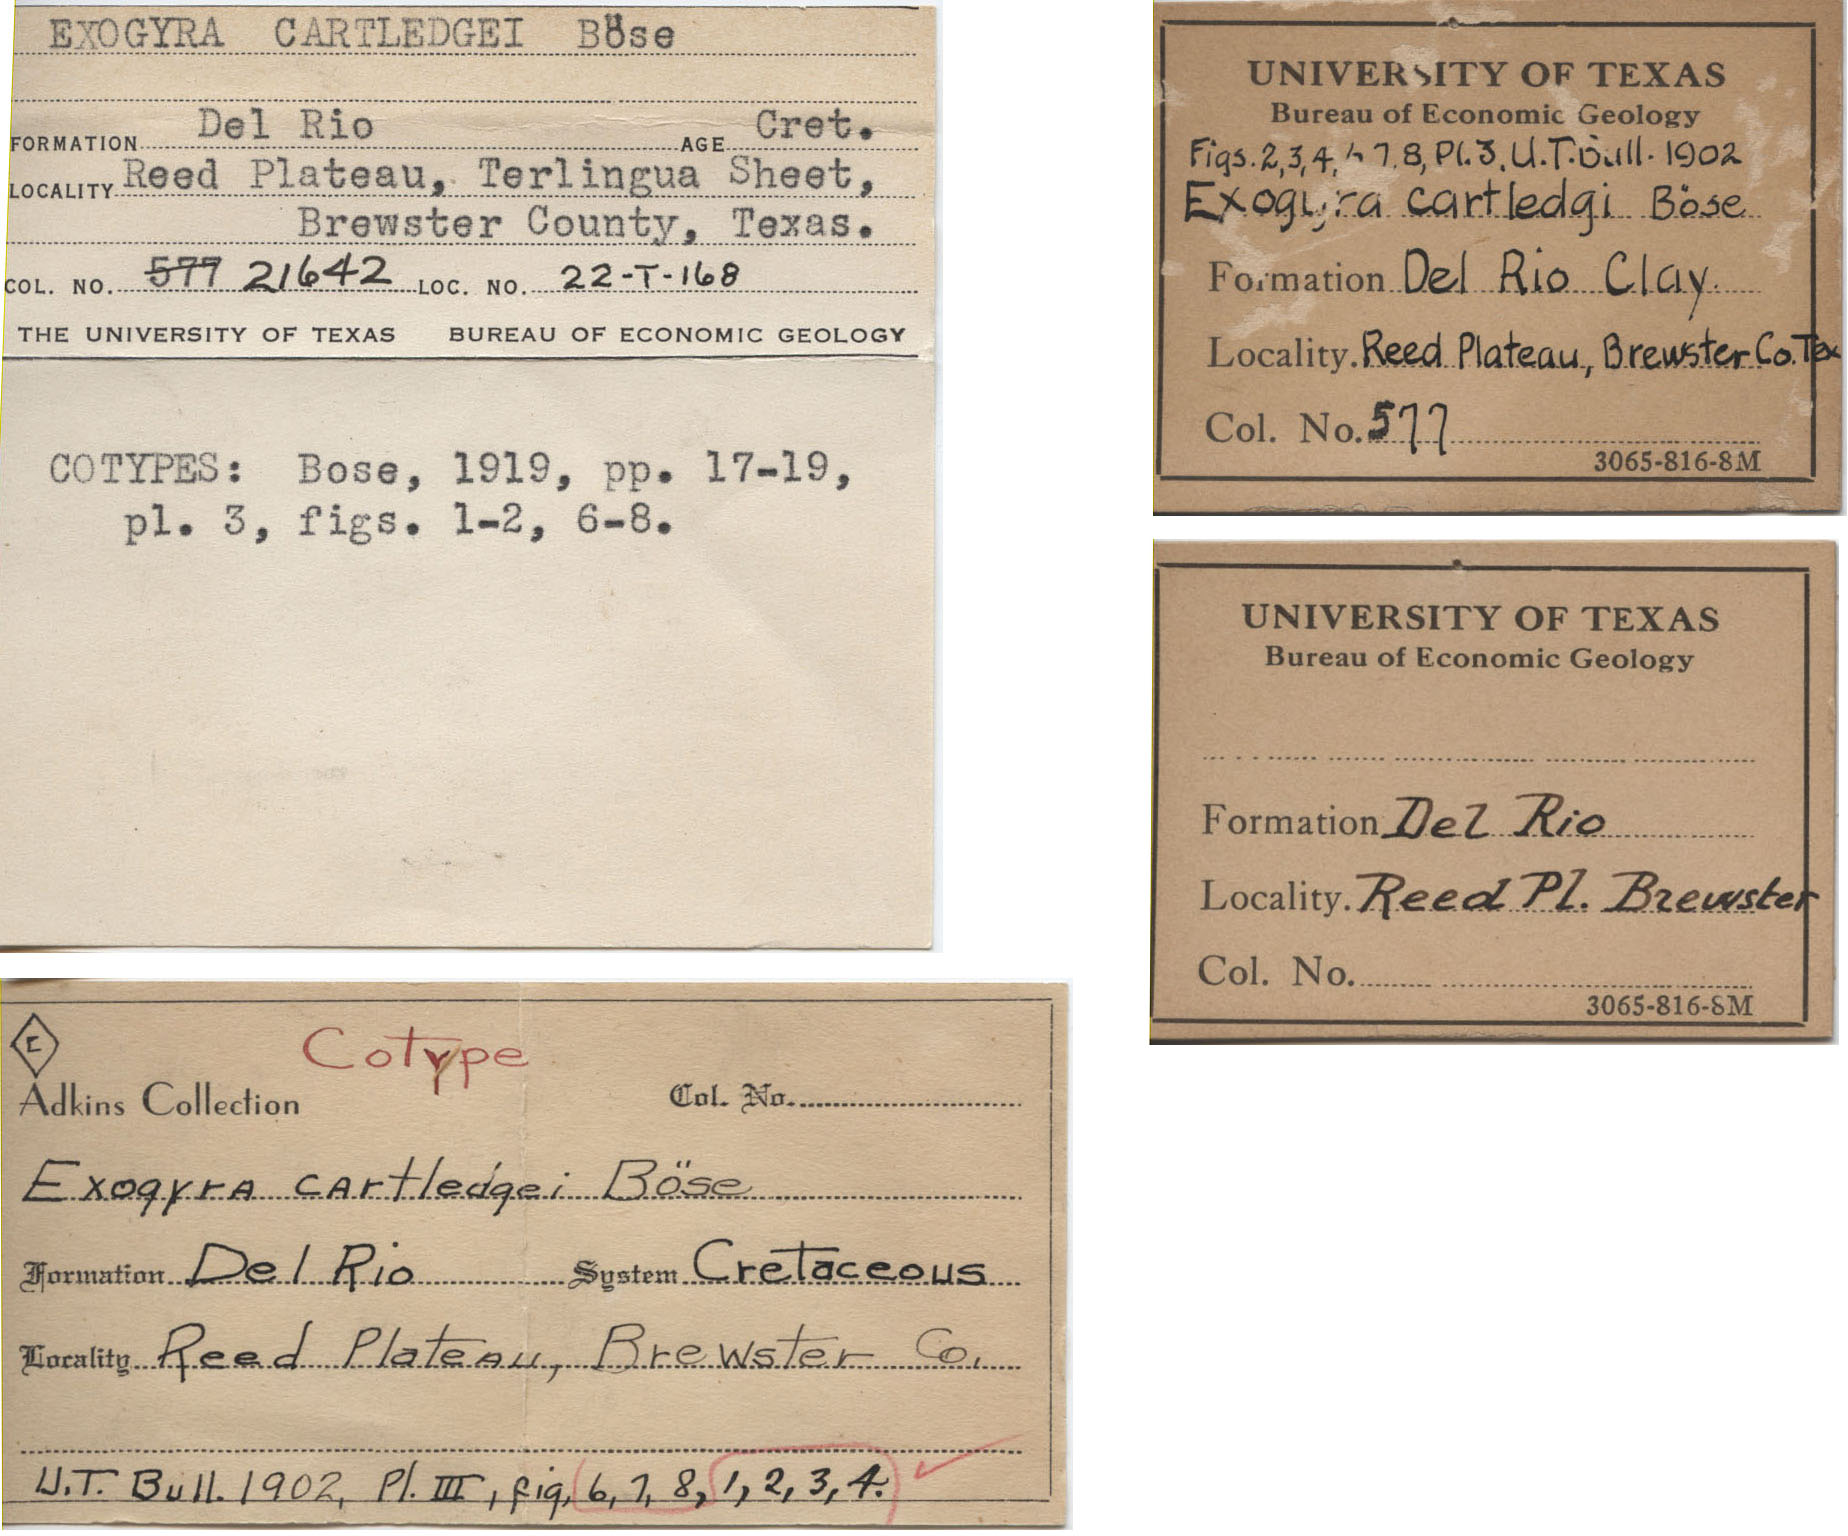 EXOGYRA CARTLEDGEI Böse
FORMATION Del Rio AGE Cret.
LOCALITY Reed Plateau, Terlingua Sheet,
Brewster County, Texas.
COL. NO. 577 21642 LOC. NO. 22-T-168
THE UNIVERSITY OF TEXAS BUREAU OF ECONOMIC GEOLOGY
COTYPES: Bose, 1919, pp. 17-19,
pl. 3, figs. 1-2, 6-8.
UNIVERSITY OF TEXAS
Bureau of Economic Geology
Figs. 2, 3, 4, 7, 8, Pl. 3, U.T. Bull. 1902
Exogyra cartledgi Böse
Formation Del Rio Clay.
Locality. Reed Plateau, Brewster Co. Tex
Col. No. 577
3065-816-8M
UNIVERSITY OF TEXAS
Bureau of Economic Geology
Formation Del Rio
Locality. Reed Pl. Brewster
Col. No.
3065-816-8M
C
Cotype
Adkins Collection Col. No.
Exogyra cartledgei Böse
Formation Del Rio System Cretaceous
Locality Reed Plateau, Brewster Co.
U.T. Bull. 1902, Pl. III, fig. 6, 7, 8, 1, 2, 3, 4.